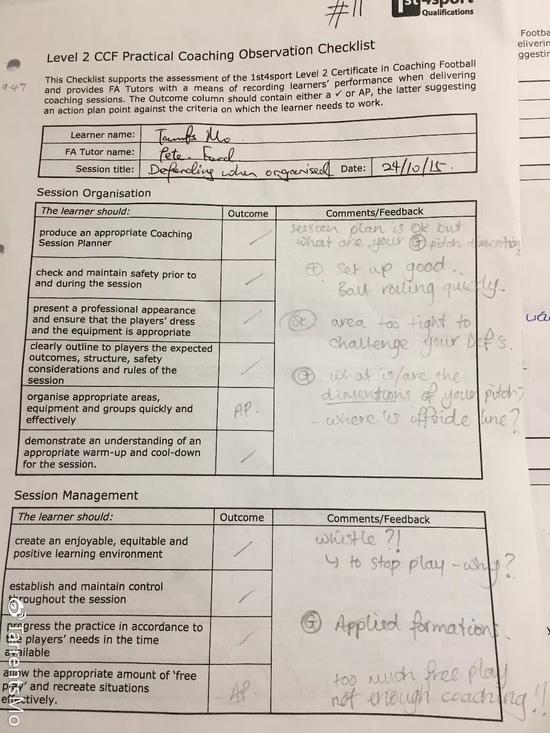 #11
1st4sport
Qualifications
Level 2 CCF Practical Coaching Observation Checklist
This Checklist supports the assessment of the 1st4sport Level 2 Certificate in Coaching Football
and provides FA Tutors with a means of recording learners' performance when delivering
coaching sessions. The Outcome column should contain either a ✓ or AP, the latter suggesting
an action plan point against the criteria on which the learner needs to work.
9:47
Learner name: Mo
FA Tutor name: Pete Ford
Session title: Defending when organised Date: 24/10/15.
Session Organisation
The learner should: Outcome Comments/Feedback
produce an appropriate Coaching
Session Planner
✓
session plan is ok but
what are your G pitch dimention
check and maintain safety prior to
and during the session
✓
+ Set up good..
Ball rolling quickly.
present a professional appearance
and ensure that the players' dress
and the equipment is appropriate
✓
SK area too tight to
challenge your Def's.
clearly outline to players the expected
outcomes, structure, safety
considerations and rules of the
session
✓
G. what is/are the
dimentions of your pitch?
- where is offside line?
organise appropriate areas,
equipment and groups quickly and
effectively
AP.
demonstrate an understanding of an
appropriate warm-up and cool-down
for the session.
✓
Session Management
The learner should: Outcome Comments/Feedback
create an enjoyable, equitable and
positive learning environment
✓
whistle ?!
↳ to stop play - why?
establish and maintain control
throughout the session
✓
progress the practice in accordance to
the players' needs in the time
available
✓
G Applied formations.
allow the appropriate amount of 'free
play' and recreate situations
effectively.
AP
too much free play
not enough coaching!!
@TarrentsMo
Footba
eliverin
ggestir